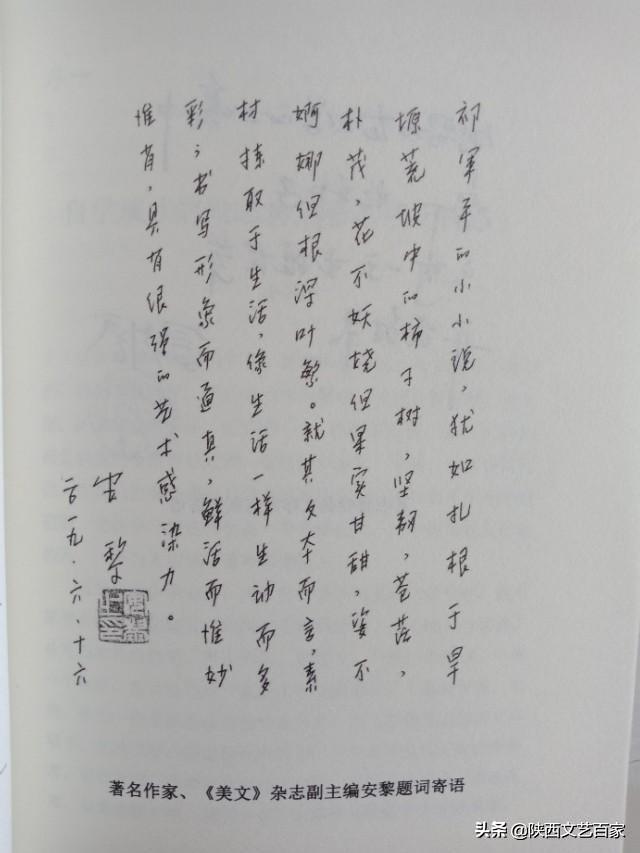 祁军平的小小说，犹如扎根于旱
塬荒坡中的柿子树，坚韧，苍，
朴茂，花不妖娆但果实甘甜，姿不
婀娜但根深叶繁。就其文本而言，素
材拣取于生活，像生活一样生动而多
彩；书写形象而逼真，鲜活而惟妙
惟肖，具有很强的艺术感染力。
安黎
二〇一九．六．十六
著名作家、《美文》杂志副主编安黎题词寄语
头条 @陕西文艺百家